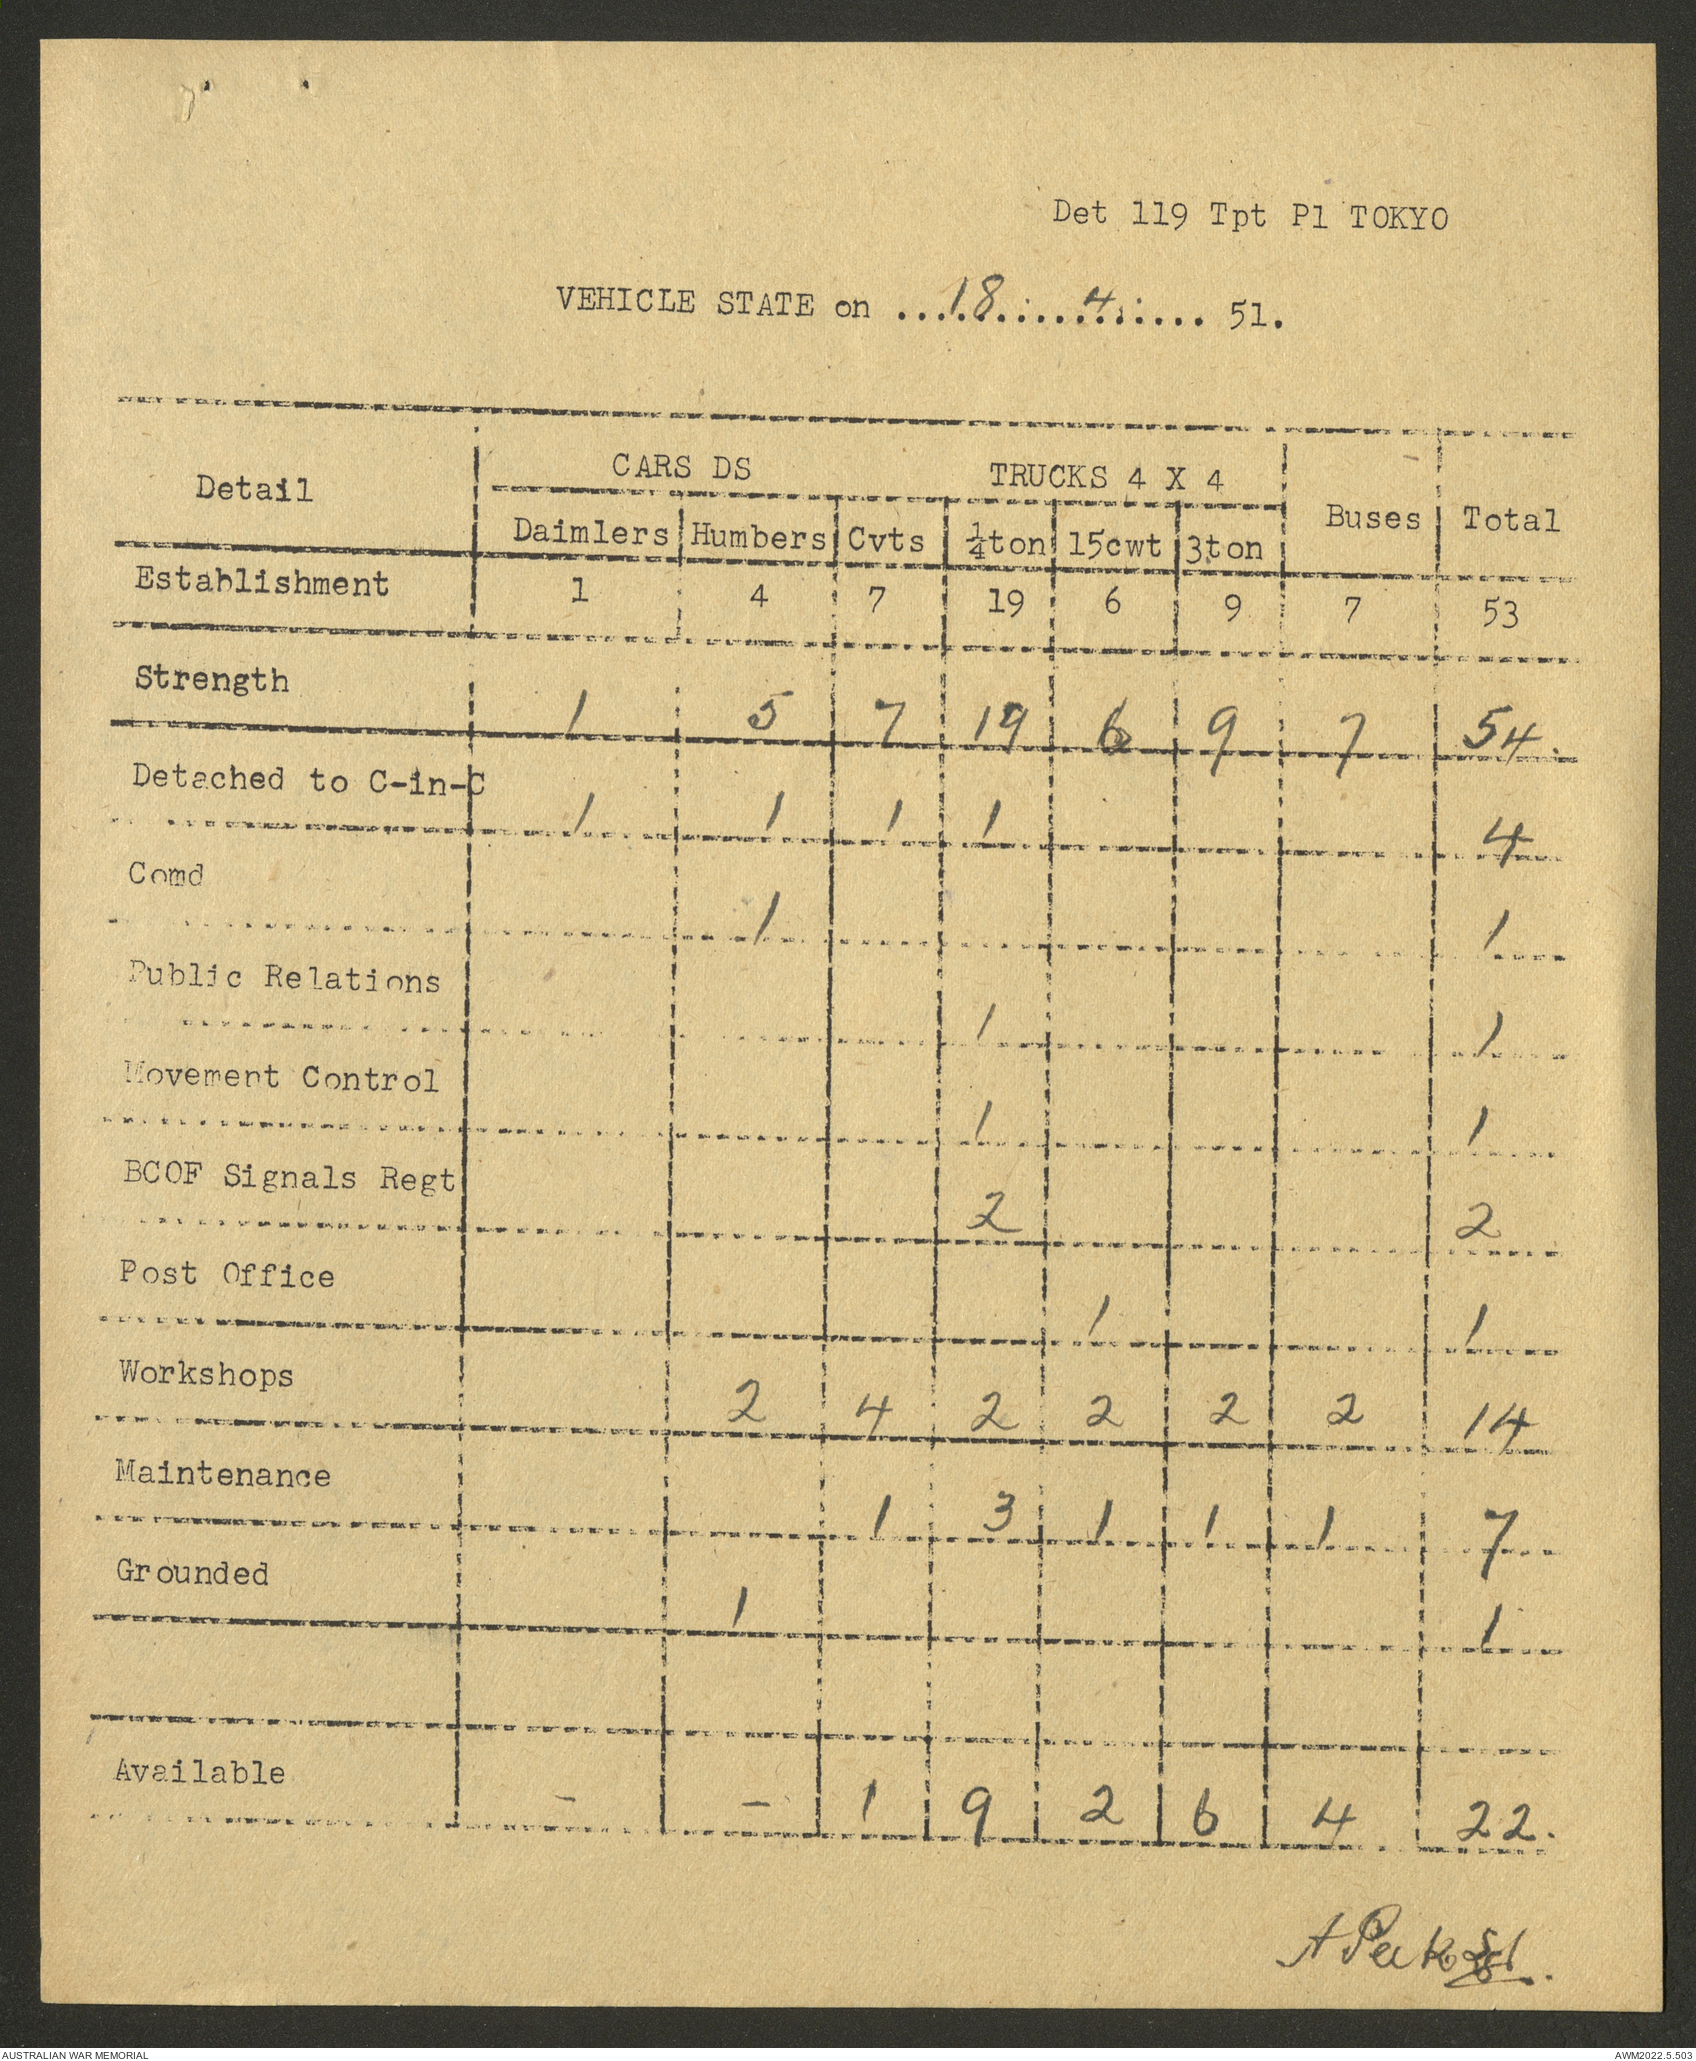 Det 119 Tpt Pl TOKYO
VEHICLE STATE on ...18.....4..... 51.
Detail CARS DS TRUCKS 4 X 4 Buses Total
Daimlers Humbers Cvts ¼ton 15cwt 3ton
Establishment 1 4 7 19 6 9 7 53
Strength 1 5 7 19 6 9 7 54.
Detached to C-in-C 1 1 1 1 4
Comd 1 1
Public Relations 1 1
Movement Control 1 1
BCOF Signals Regt 2 2
Post Office 1 1
Workshops 2 4 2 2 2 2 14
Maintenance 1 3 1 1 1 7
Grounded 1 1
Available - - 1 9 2 6 4 22.
A Peek Sgt.
AUSTRALIAN WAR MEMORIAL AWM2022.5.503